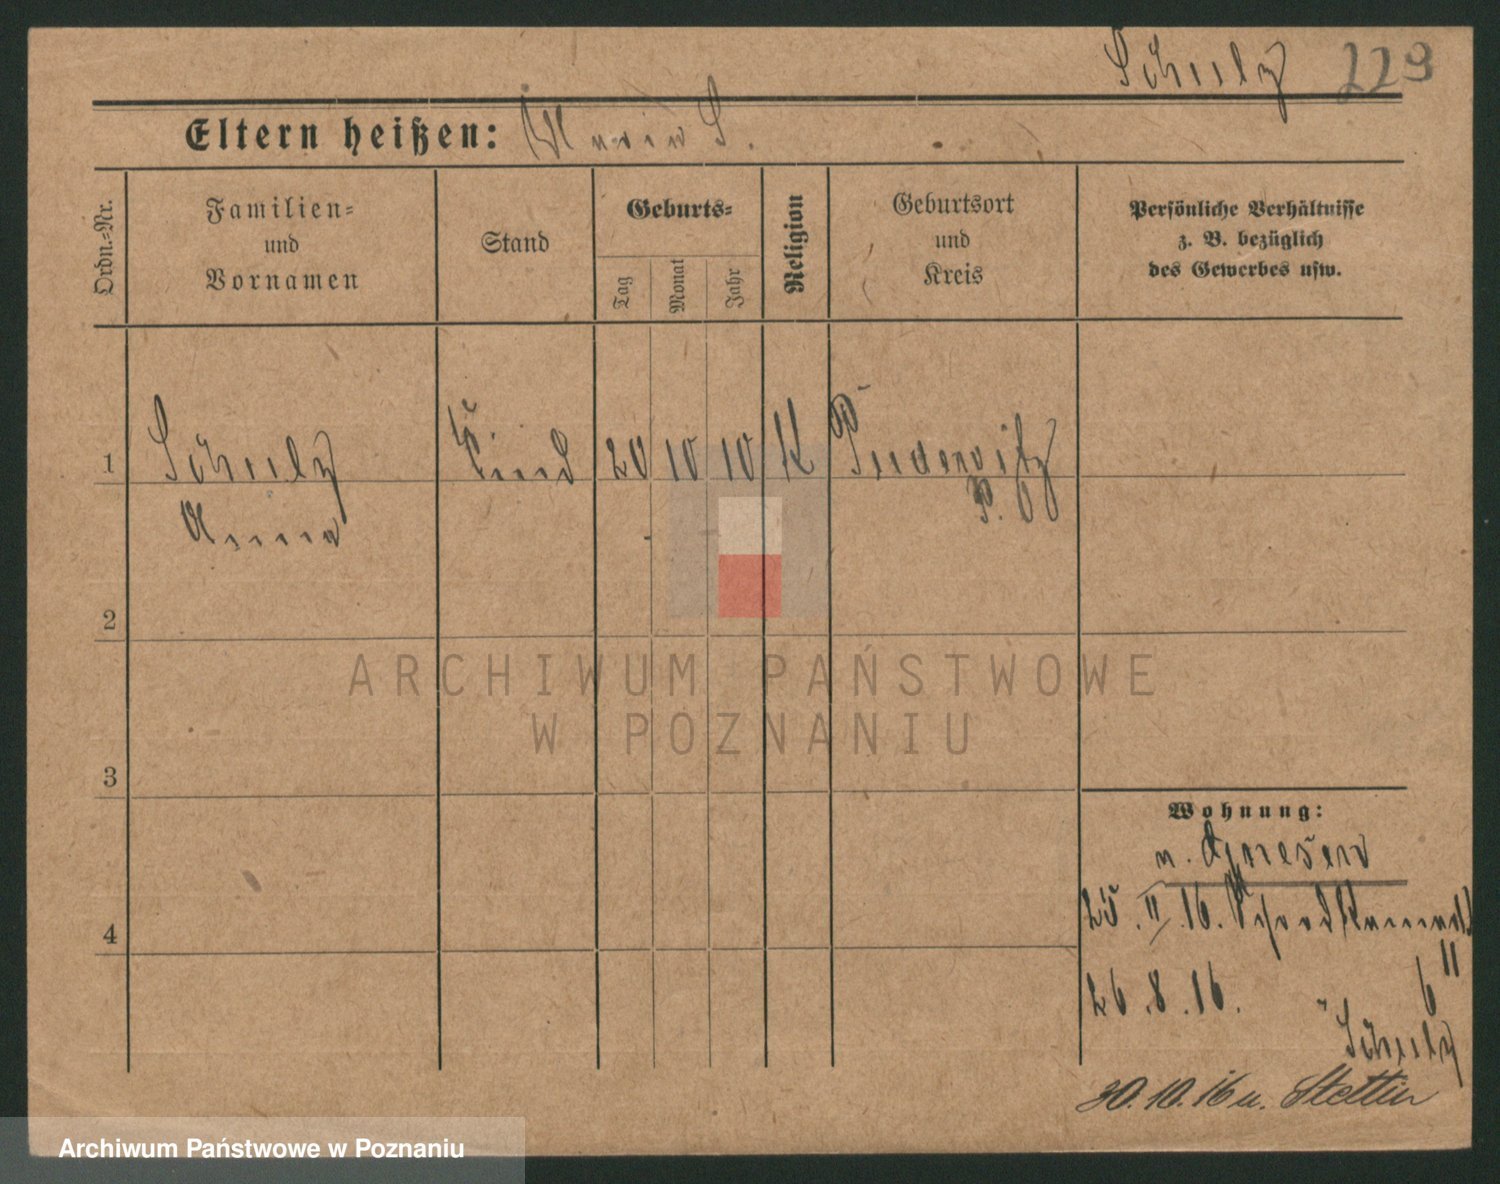 Schulz 229
Eltern heißen: Maria S.
Ordn.-Nr.
Familien-
und
Vornamen
Stand
Geburts-
Tag
Monat
Jahr
Religion
Geburtsort
und
Kreis
Persönliche Verhältnisse
z. B. bezüglich
des Gewerbes usw.
1 Schulz Kind 20 10 10 K Pudewitz
Anna P. O
2
ARCHIWUM PAŃSTWOWE
W POZNANIU
3
Wohnung:
n. Gnesen
4
25. II. 16.
26. 8. 16. 6 II
Schulz
30. 10. 16 n. Stettin
Archiwum Państwowe w Poznaniu